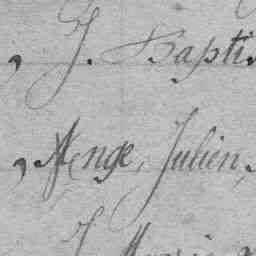 , J. Bapti
, Ange, Julien,
J Marie